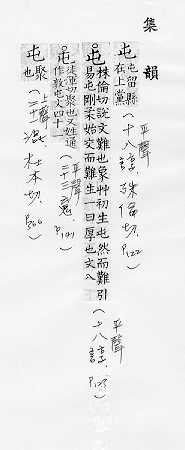 集韻
屯 屯留縣在上黨
(十八諄 平聲 殊倫切 P122)
屯 株倫切說文難也象艸初生屯然而難引易屯剛柔始交而難生一曰厚也文八
(十八諄 平聲 P123)
屯 徒渾切聚也又姓通作敦屯文四十一
(二十三魂 平聲 P141)
屯 聚也
(二十一混 杜本切 P366)